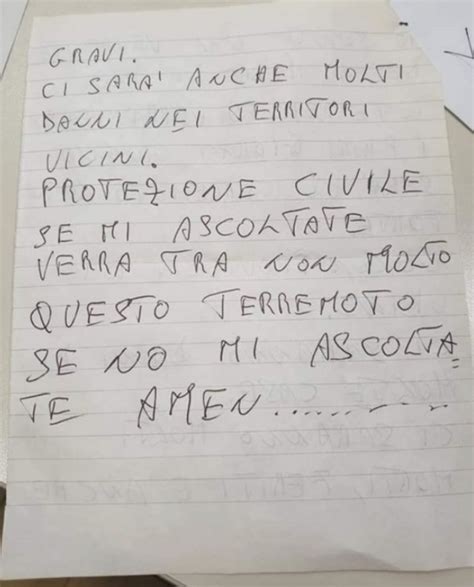 GRAVI.
CI SARA' ANCHE MOLTI
DANNI NEI TERRITORI
VICINI.
PROTEZIONE CIVILE
SE MI ASCOLTATE
VERRA TRA NON MOLTO
QUESTO TERREMOTO
SE NO MI ASCOLTA
TE AMEN..........